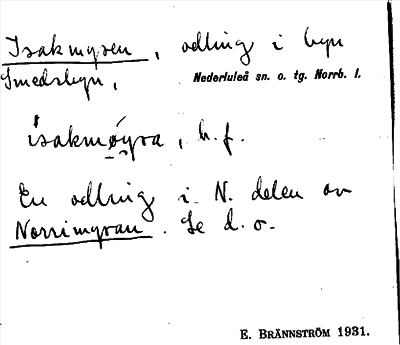 Isakmyren, odling i byn
Smedsbyn,
Nederluleå sn. o. tg. Norrb. l.
isakmøyra, b. f.
En odling i N. delen av
Norrimyran. Se d. o.
E. BRÄNNSTRÖM 1931.